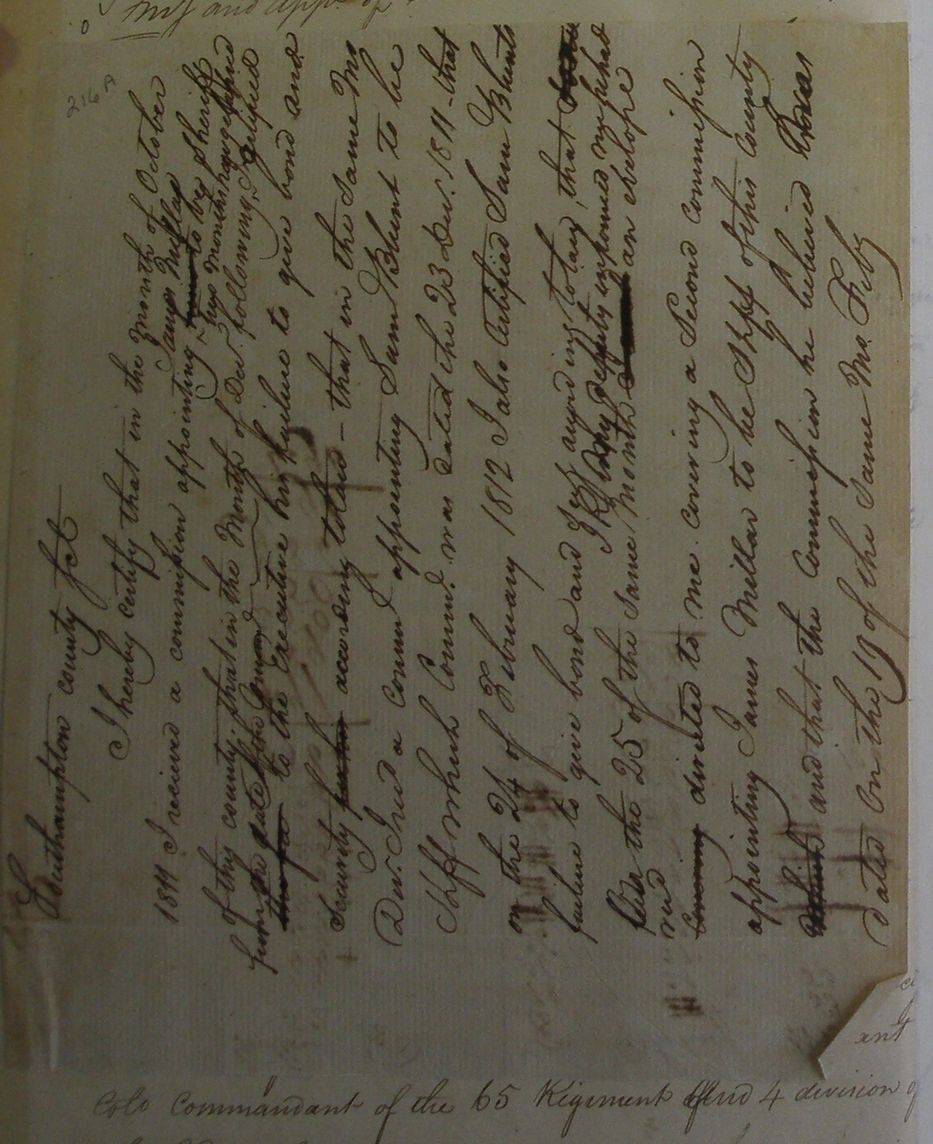 and appt. of
216 A
Southampton county sct
I hereby certify that in the Month of October
1811 I received a commission appointing James Millar to be Sheriff
of this county, that in the Month of Decr. following, two Months having elapsed
from the date of the I certified
to the Executive his failure to give bond and
security according to law — that in the Same Mo
Decr. I recd a comm appointing Saml Blunt to be
Shff which Commn. was dated the 23 Decr. 1811 - that
on the 24 of February 1812 I also certified Saml Blunts
failure to give bond and Security according to law, that
after the 25 of the Same Month my deputy informed me he had
recd an envelope
directed to me covering a Second commission
appointing James Millar to be Shff of this County
and that the commission he believed was
dated On the 19 of the Same Mo. Feby
ant
Colo Commandant of the 65 Regiment and 4 division of